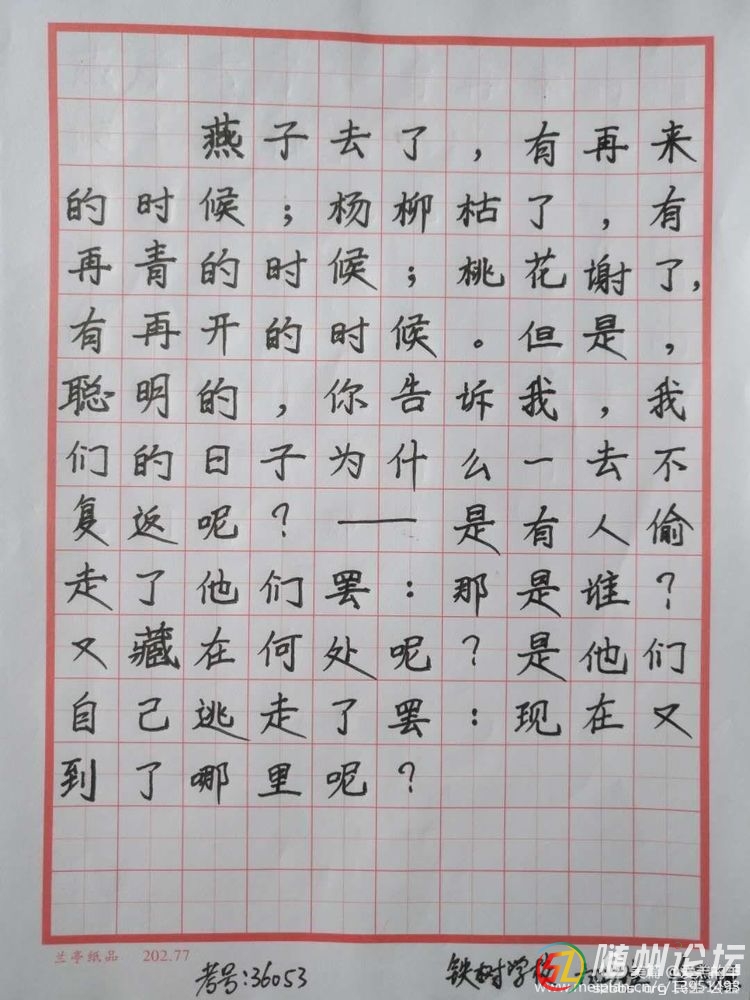 燕子去了，有再来
的时候；杨柳枯了，有
再青的时候；桃花谢了，
有再开的时候。但是，
聪明的，你告诉我，我
们的日子为什么一去不
复返呢？——是有人偷
走了他们罢：那是谁？
又藏在何处呢？是他们
自己逃走了罢：现在又
到了哪里呢？
兰亭纸品 202.77
考号:36053
铁树学校
随州论坛